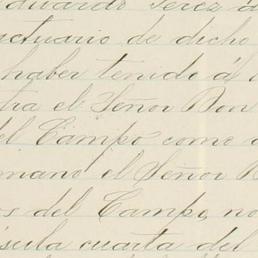 duardo Perez
actuario de dicho
haber tenido á
tra el Señor Don
del Campo como
mano el Señor
os del Campo, no
sula cuarta del